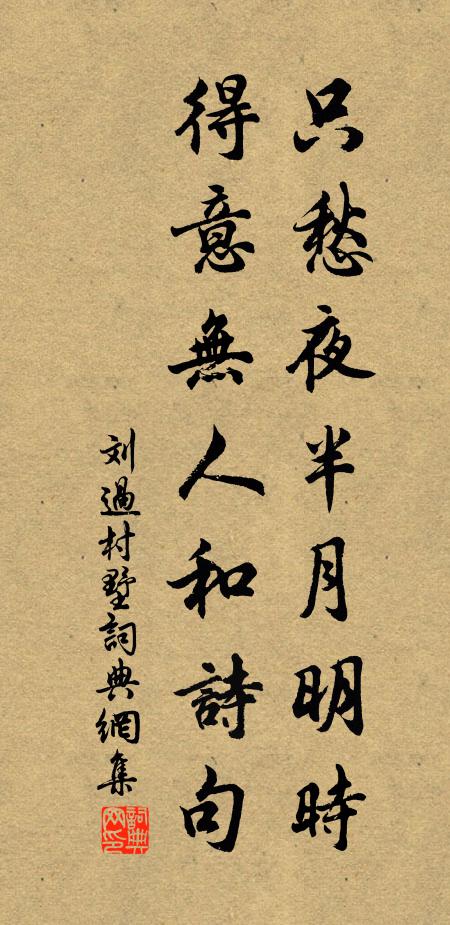 只愁夜半月明時
得意無人和詩句
刘過村墅詞典網集
詞典网印